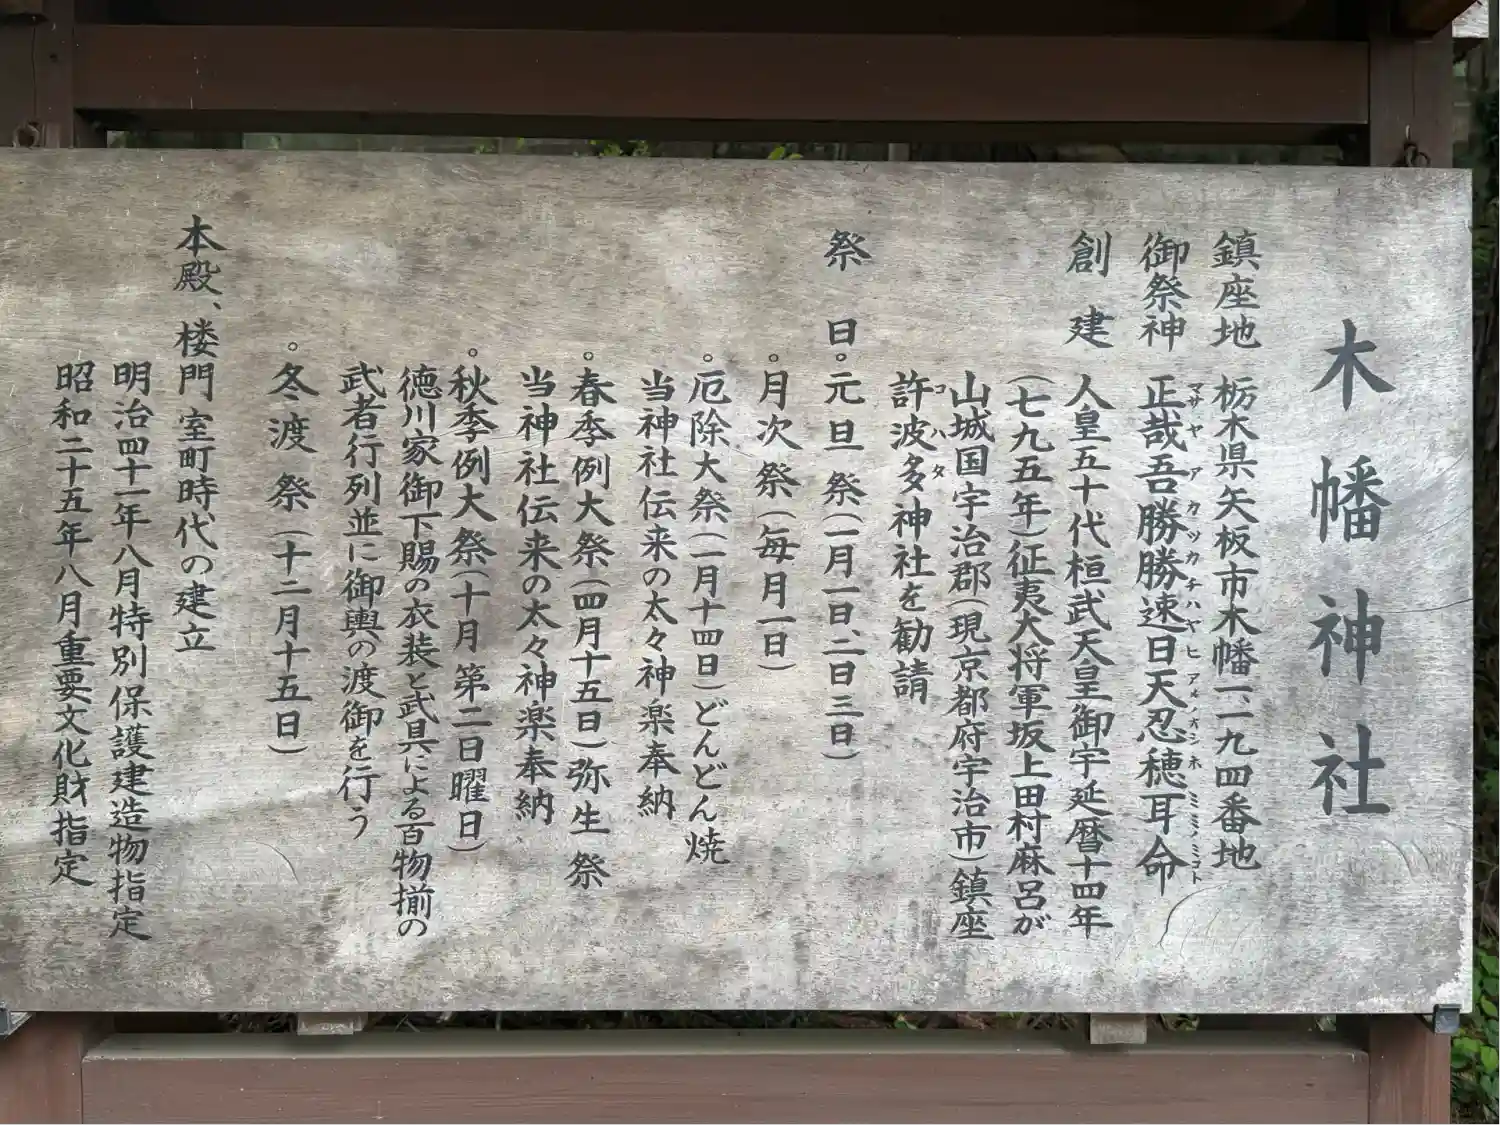 木幡神社
鎮座地 栃木県矢板市木幡一、一九四番地
御祭神 正哉吾勝勝速日天忍穂耳命
マサヤアカツカチハヤヒアメノオシホミミノミコト
創建 人皇五十代桓武天皇御宇延暦十四年
(七九五年)征夷大将軍坂上田村麻呂が
山城国宇治郡(現京都府宇治市)鎮座
許波多神社を勧請
コハタ
祭日。元旦祭(一月一日、二日三日)
。月次祭(毎月一日)
。厄除大祭(一月十四日)どんどん焼
当神社伝来の太々神楽奉納
。春季例大祭(四月十五日)弥生祭
当神社伝来の太々神楽奉納
。秋季例大祭(十月第二日曜日)
徳川家御下賜の衣装と武具による百物揃の
武者行列並に御輿の渡御を行う
。冬渡祭(十二月十五日)
本殿、楼門室町時代の建立
明治四十一年八月特別保護建造物指定
昭和二十五年八月重要文化財指定